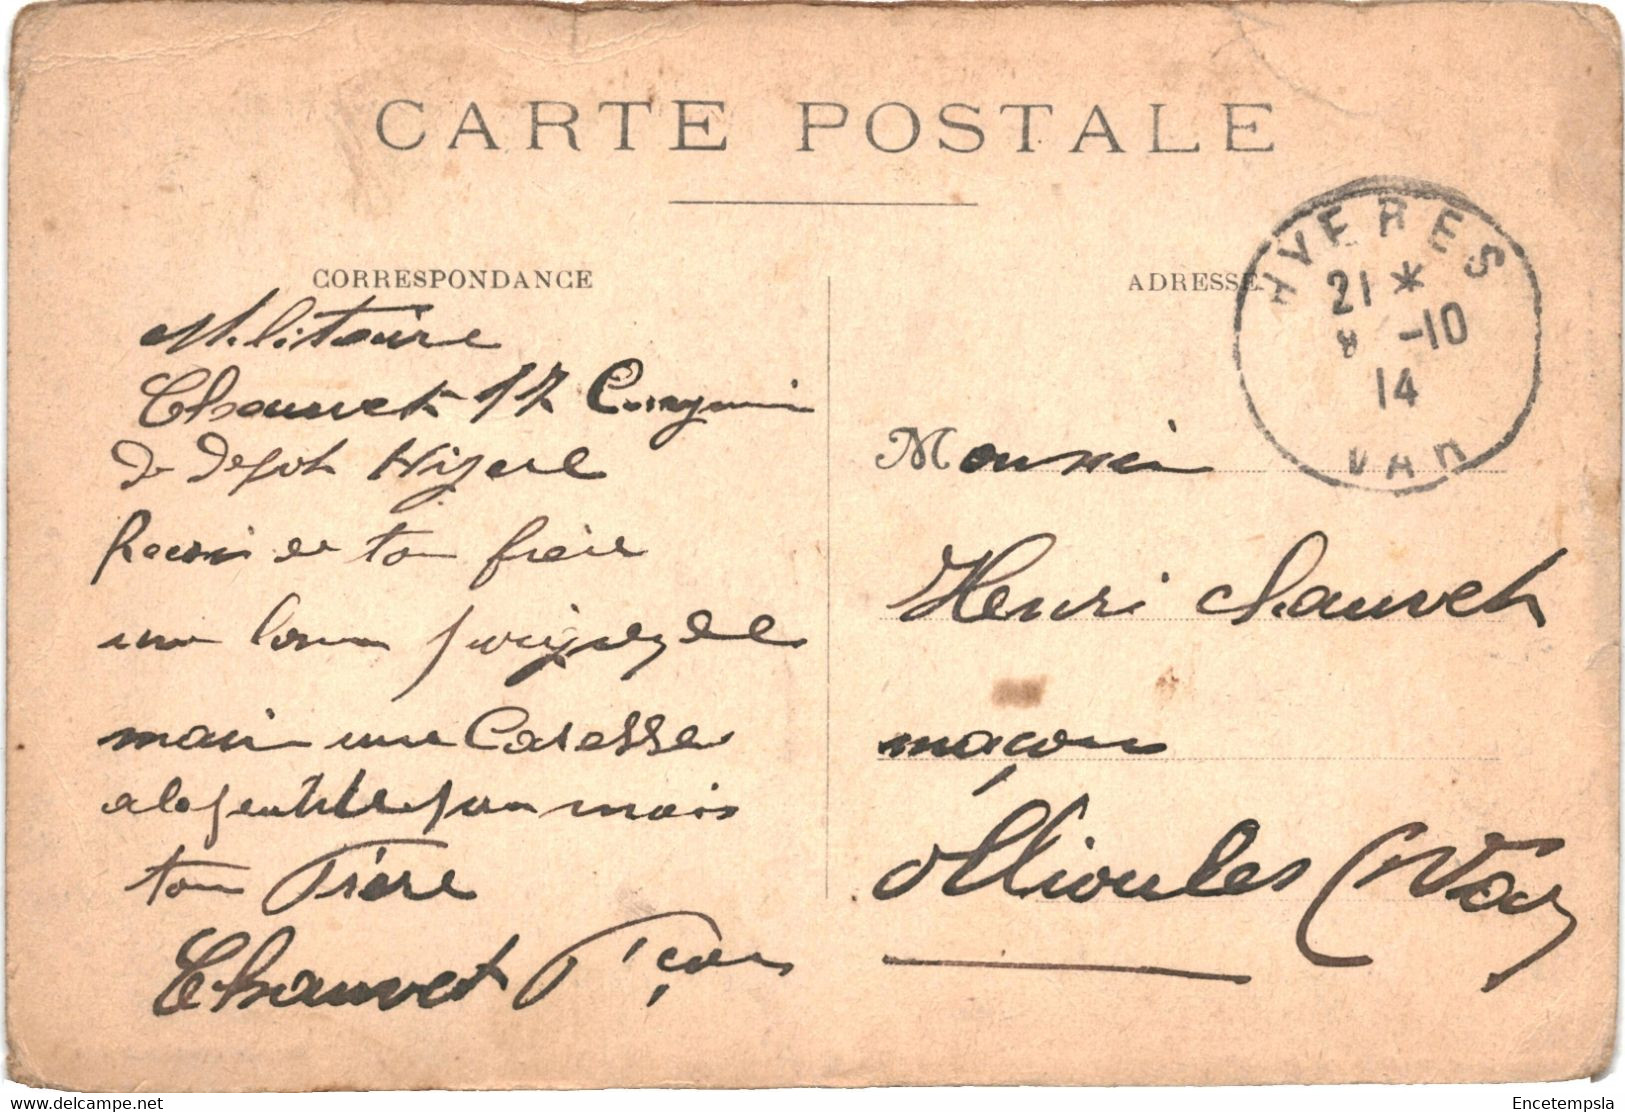 CARTE POSTALE
CORRESPONDANCE
Militaire
Chauvet 17 Compagnie
de depot Hyere
Recoi de ton frère
une bonne poignée de
main une Caresse
a la gentille
mais
ton Frère
Chauvet F
ADRESSE
HYERES
21 *
8 -10
14
VAR
Monsieur
Henri Chauvet
maçon
Ollioules (Var)
www.delcampe.net
Encetempsla